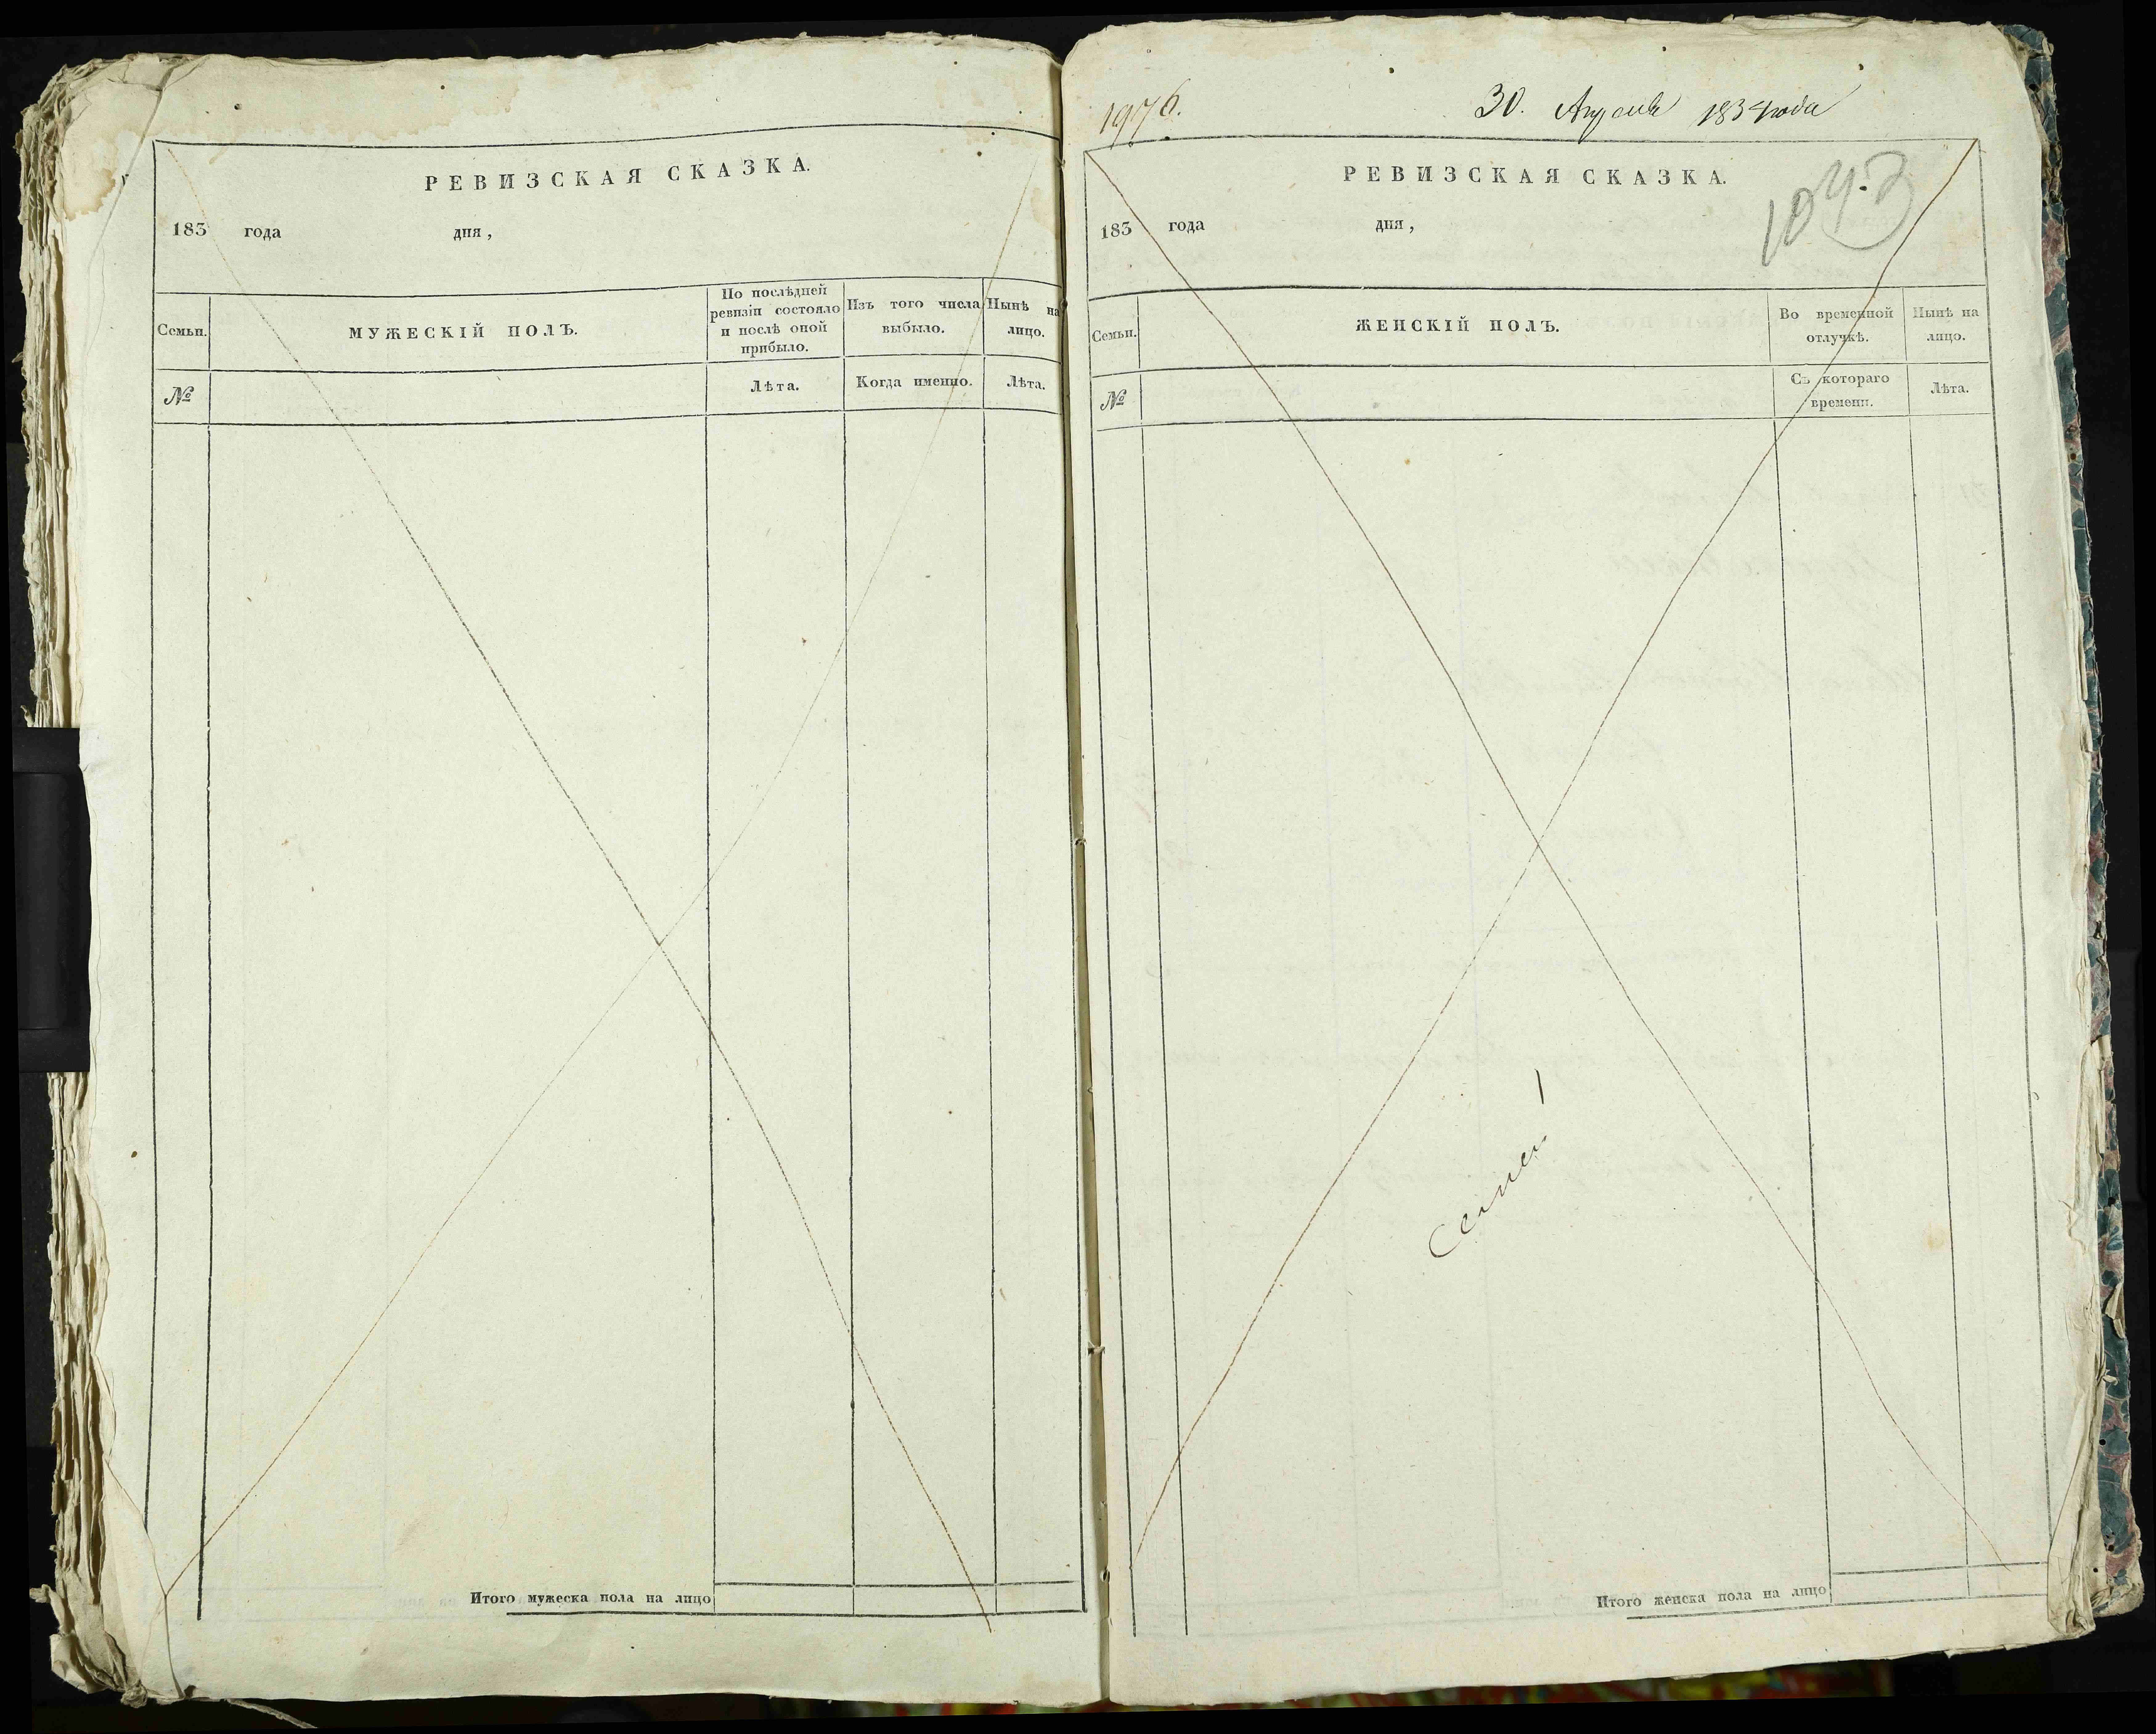 РЕВИЗСКАЯ СКАЗКА.
183 года дня,
Семьи.
МУЖЕСКІЙ ПОЛЪ.
По послѣдней ревизіи состояло и послѣ оной прибыло.
Изъ того числа выбыло.
Нынѣ на лицо.
№
Лѣта.
Когда именно.
Лѣта.
Итого мужеска пола на лицо
1976.
30. Апреля 1834 года
РЕВИЗСКАЯ СКАЗКА.
183 года дня,
Семьи.
ЖЕНСКІЙ ПОЛЪ.
Во временной отлучкѣ.
Нынѣ на лицо.
№
Съ котораго времени.
Лѣта.
Итого женска пола на лицо